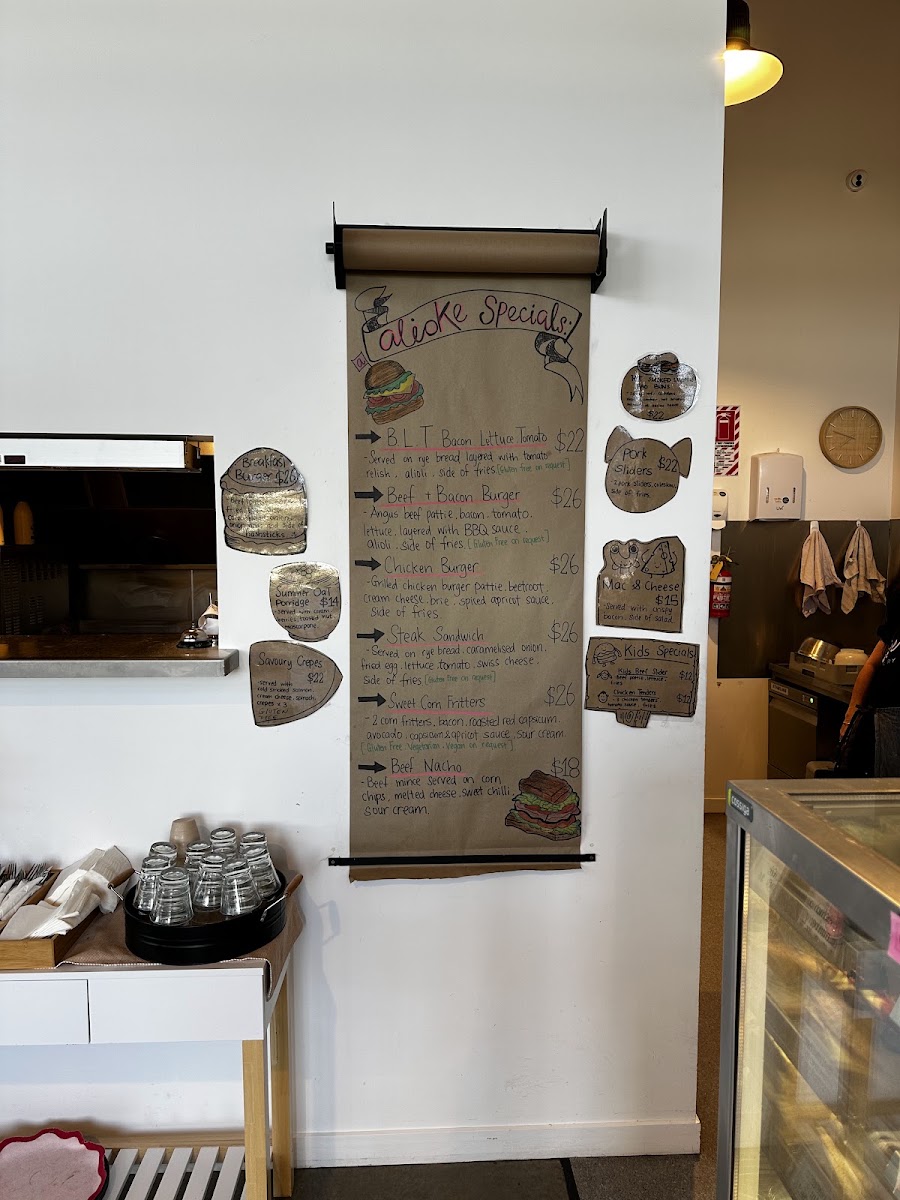 alioke Specials:
B L T Bacon Lettuce Tomato $22
- Served on rye bread layered with tomato
relish, alioli, side of fries [Gluten free on request]
Beef + Bacon Burger $26
- Angus beef pattie, bacon, tomato,
lettuce, layered with BBQ sauce,
alioli, side of fries. [Gluten free on request]
Chicken Burger $26
- Grilled chicken burger pattie, beetroot
cream cheese, brie, spiced apricot sauce,
side of fries.
Steak Sandwich $26
- Served on rye bread, caramelised onion,
fried egg, lettuce, tomato, swiss cheese,
side of fries [Gluten free on request]
Sweet Corn Fritters $26
- 2 corn fritters, bacon, roasted red capsicum,
avocado, capsicum & apricot sauce, sour cream
[Gluten Free Vegetarian, Vegan on request]
Beef Nacho $18
- Beef mince served on corn
chips, melted cheese, sweet chilli,
sour cream.
Breakfast
Burger $26
hashsticks
Summer Oat
Porridge $14
Served with
mascarpone
Savoury Crepes
$22
- served with
cold smoked salmon,
cream cheese, spinach,
crepes x 3
$22
Pork
Sliders $22
- 2 pork sliders, coleslaw,
side of fries.
Mac & Cheese
$15
- Served with crispy
bacon, side of salad.
Kids Specials
Kids Beef Slider $12
Beef pattie, lettuce,
fries
Chicken Tenders $12
cossiga